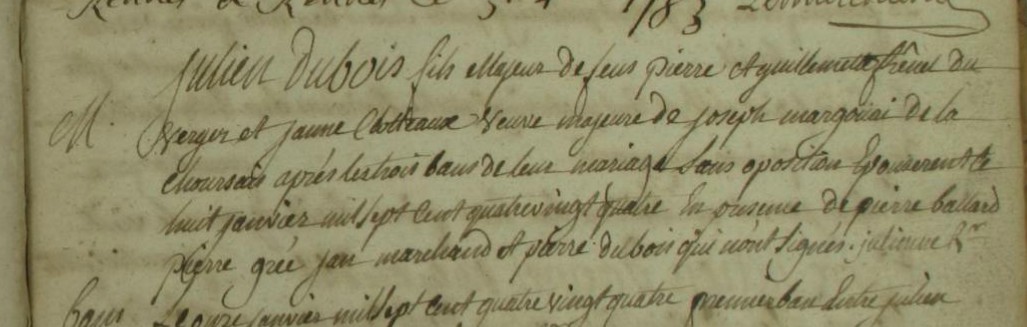 Rennes & Rennes ce 1783
Julien Dubois fils Majeur de feus pierre et guillemette frênel du
M. verger et janne Chotteaux veuve majeure de joseph margouai de la
choursais aprés les trois bans de leur mariage sans oposition Epouserent le
huit janvier mil sept cent quatrevingt quatre En presense de pierre ballard
pierre grée jan marchand et pierre dubois qui n'ont signés. julienne
bans Le onze janvier mil sept cent quatre vingt quatre premier ban Entre julien